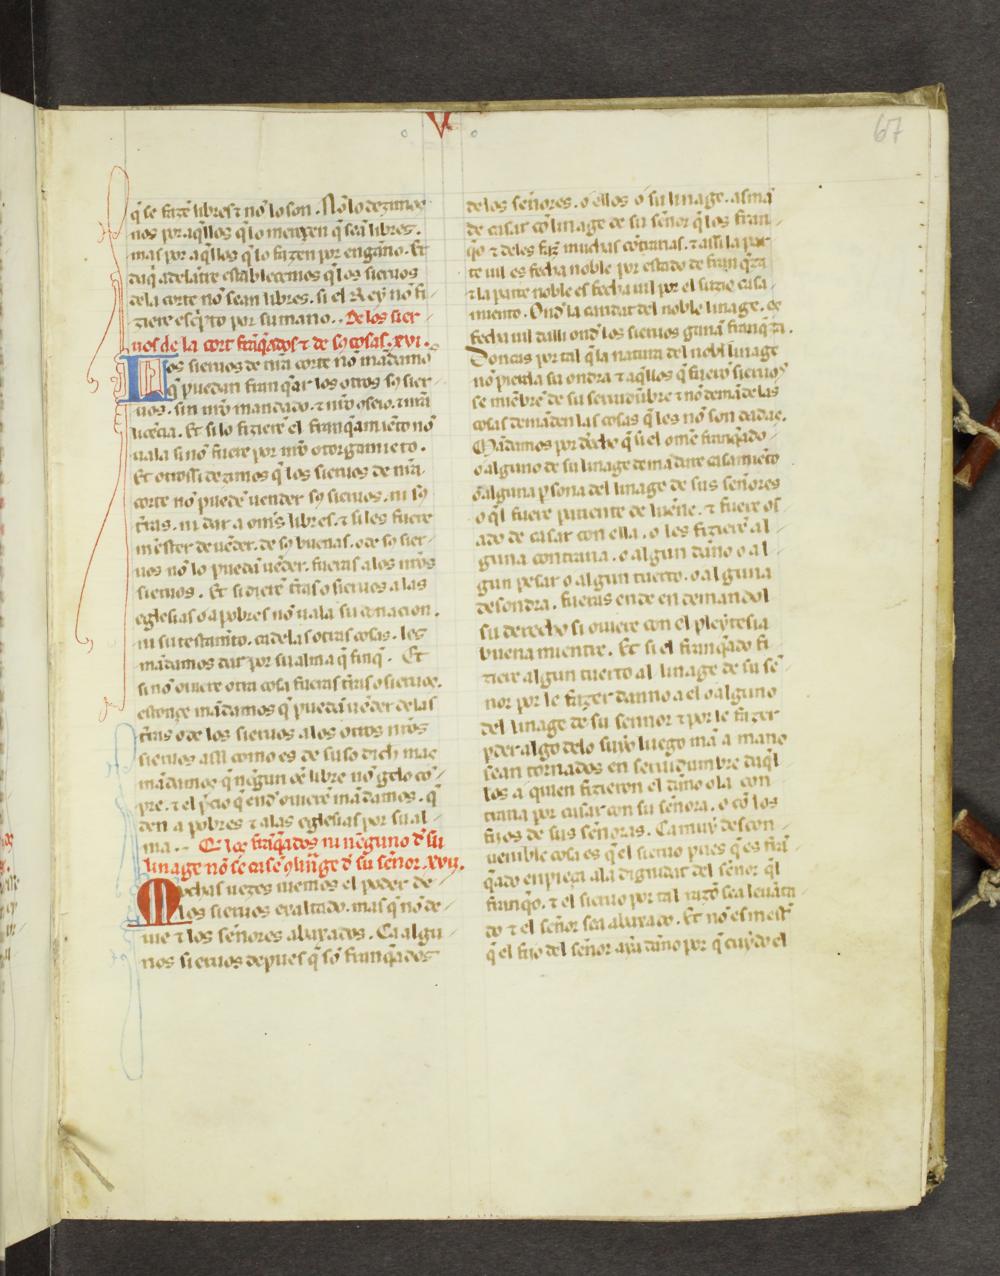 V
67
q̃ se fazẽ libres ⁊ nõ lo son. Nõ lo dezimos
nos por aq̃llos q̃ lo merecen q̃ seã libres.
mas por aq̃llos q̃ lo fazen por engãno. Et
daq̃ adelante establecemos q̃ los sieruos
dela corte nõ sean libres. si el Rey nõ fi
ziere esc̃pto por su mano. De los sier
uos de la cort frãq̃ados ⁊ de sꝯ cosas. xvi.
Los sieruos de nr̃a corte nõ mãdamos
q̃ puedan franq̃ar los otros sꝯ sier
uos. sin nr̃o mandado. ⁊ nr̃o oseio. ⁊ nr̃a
licẽcia. Et si lo fizierẽ el franq̃amiẽto nõ
uala si nõ fuere por nr̃o otorgamieto.
Et otrossi dezimos q̃ los sieruos de nr̃a
corte nõ puedẽ uender sꝯ sieruos. ni sꝯ
tr̃ras. ni dar a om̃s libres. ⁊ si les fuere
mẽster de uẽder. de sꝯ buenas. o de sꝯ sier
uos nõ lo puedã uẽder. fueras a los nr̃os
sieruos. Et si dierẽ tr̃ras o sieruos a las
eglesias o a pobres nõ uala su donacion.
ni su testamẽto. ca delas otras cosas. les
mãdamos dar por su alma q̃ finq̃. Et
si nõ ouiere otra cosa fueras tr̃ras o sieruos.
estonçe mãdamos q̃ puedã uẽder delas
tr̃ras o de los sieruos a los otros nr̃os
sieruos assi como es de suso dich mas
mãdamos q̃ nẽgun oẽ libre nõ gelo cõ
pre. ⁊ el p̃cio q̃ end ouierẽ mãdamos. q̃
den a pobres ⁊ alas eglesias por su al
ma. Q̃ los frãq̃ados ni nẽguno d̃ su
linage nõ se case cõ linãge d̃ su señor. xvij.
Muchas uezes uiemos el poder de
los sieruos exaltado. mas q̃ nõ de
uie ⁊ los señores abaxados. Ca algu
nos sieruos depues q̃ sõ franq̃ados
delos señores. o ellos o su linage. asmã
de casar cõ linage de su señor q̃ los fran
q̃o ⁊ deles faz̃ muchas cõtrarias. ⁊ assi la par
te uil es fecha noble por estado de franq̃za
⁊ la parte noble es fecha uil por el suzie casa
miento. Ond la caridat del noble linage. es
fecha uil dalli ond los sieruos ganã franq̃za.
Doncas por tal q̃ la natura del nobl linage
nõ pierda su ondra ⁊ aq̃llos q̃ fuerõ sieruos
se miẽbrẽ de su seruidũbre ⁊ nõ demãdẽ las
cosas demãden las cosas q̃ les nõ son dadas.
Mãdamos por dr̃echo q̃ si el ome franq̃ado
o alguno de su linage demãdare casamiẽto
o alguna p̱sona del linage de sus señores
o q̃l fuere pariente de luẽne. ⁊ fuere os
ado de casar con ella. o les fizierẽ al
guna contraria. o algun daño o al
gun pesar o algun tuerto. o alguna
desondra. fueras ende en demandol
su derecho si ouiere con el pleytesia
buena mientre. Et si el franq̃ado fi
ziere algun tuerto al linage de su se
nor por le fazer danno a el o alguno
del linage de su sennor ⁊ por le fazer
p̱der algo delo suyo luego mã a mano
sean tornados en seruidumbre daq̃l
los a quien fizieron el daño o la con
traria por casar con su señora. o cõ los
fijos de sus señoras. Ca muy descon
uenible cosa es q̃ el sieruo pues q̃ es frã
q̃ado enpieça ala dignidat del señor q̃l
franq̃o. ⁊ el sieruo por tal razõ sea leuãta
do ⁊ el señor sea abaxado. Et nõ es mest̃
q̃ el fijo del señor aya daño por q̃ cuydo el